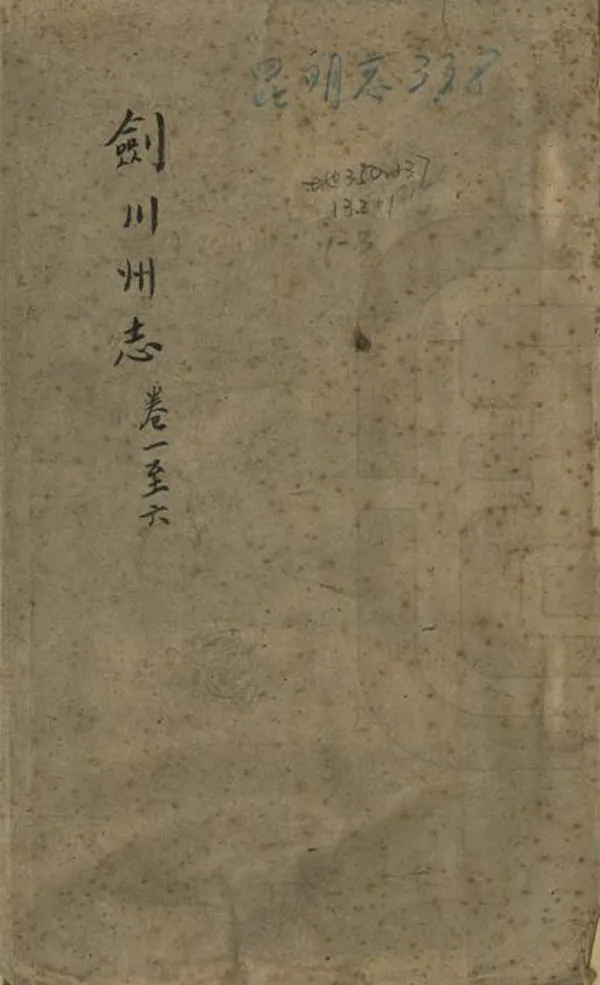 昆明志338
劍川州志
卷一至六
13.2
1-3